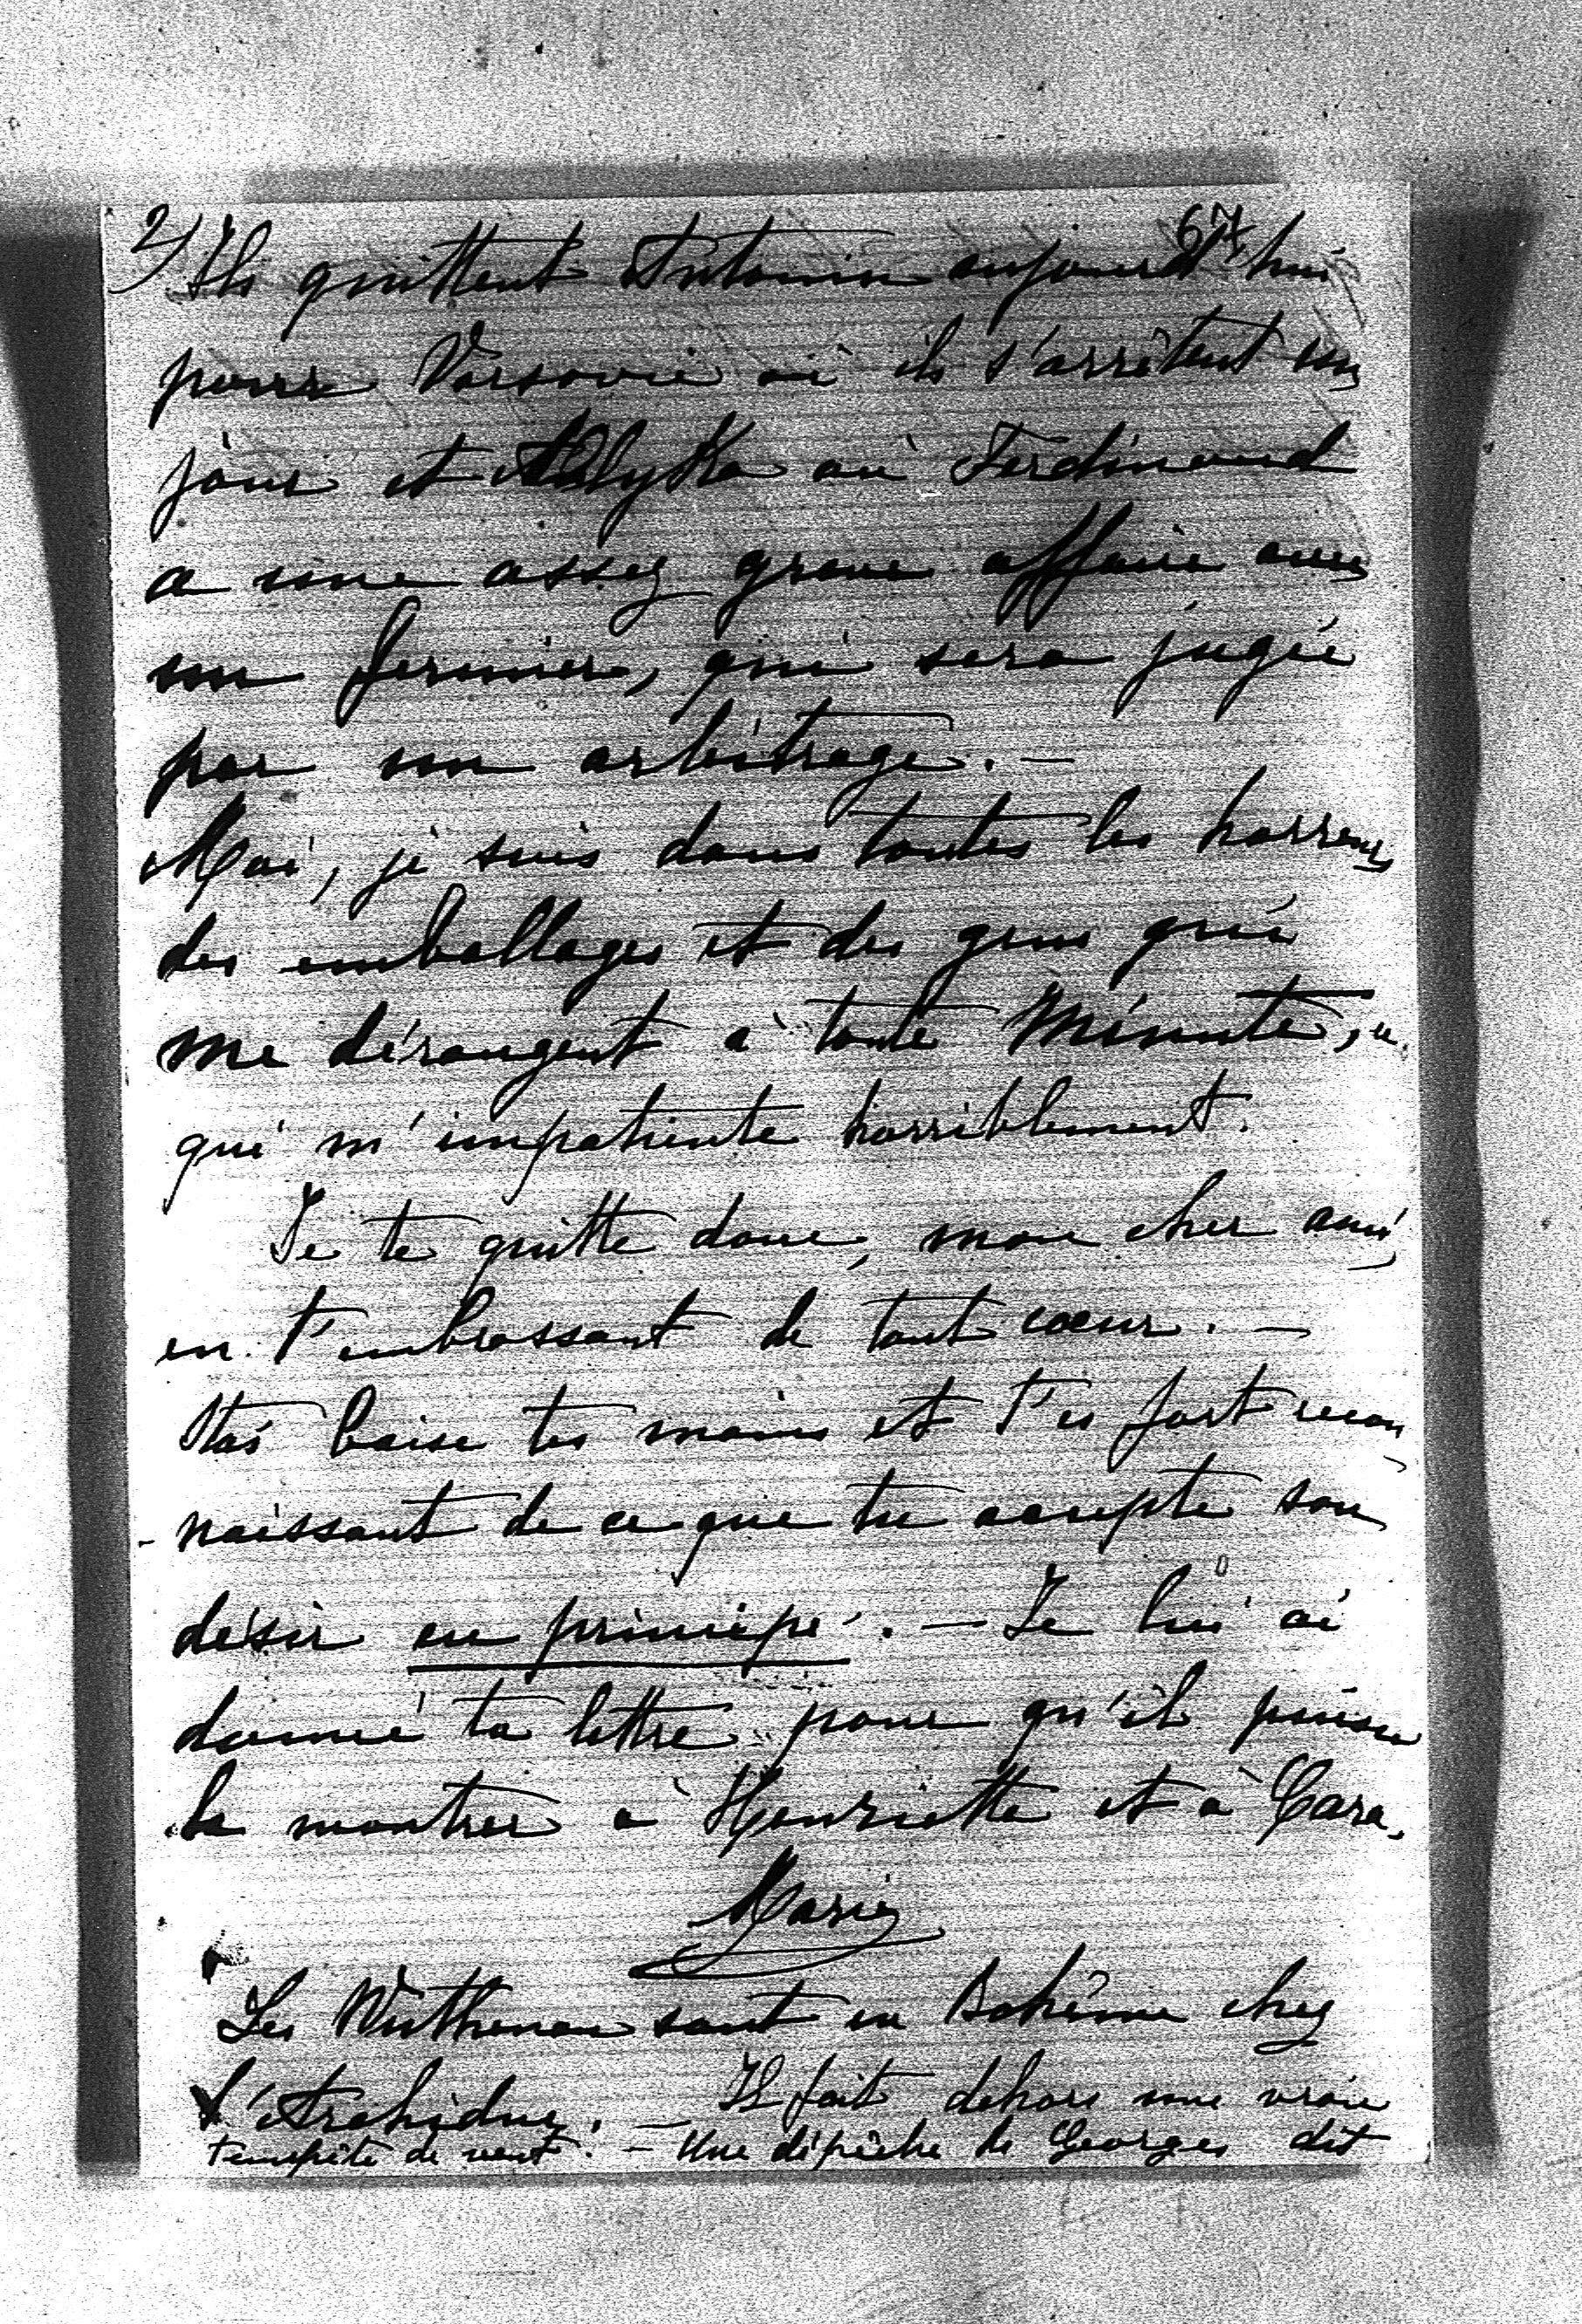 2) 67
Ils quittent Antonin aujourd'hui
pour Varsovie où ils s'arrêtent un
jour et Ołyka où Ferdinand
a une assez grave affaire avec
un fermier, qui sera jugée
par un arbitrage. —
Moi, je suis dans toutes les horreurs
des emballages et des gens qui
me dérangent à toute minute, ce
qui m'impatiente horriblement.
Je te quitte donc, mon cher ami,
en t'embrassant de tout cœur. —
Staś baise tes mains et t'es fort recon
-naissant de ce que tu accepte son
désir en principe. — Je lui ai
donné ta lettre pour qu'il puisse
la montrer à Henriette et à Cara.
Marie
Les Wuthenau sont en Bohême chez
l'Archiduc. — Il fait dehors une vraie
tempête de vent. — Une dépêche de Georges dit